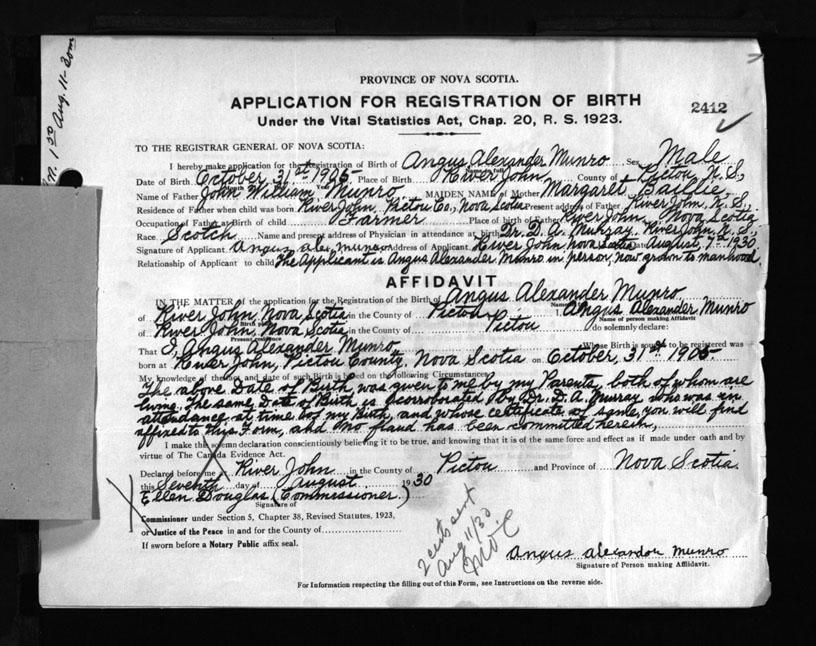 PROVINCE OF NOVA SCOTIA.
APPLICATION FOR REGISTRATION OF BIRTH
2412
Under the Vital Statistics Act, Chap. 20, R. S. 1923.
TO THE REGISTRAR GENERAL OF NOVA SCOTIA:
I hereby make application for the Registration of Birth of Angus Alexander Munro Sex Male
Date of Birth October 31st 1905 Place of Birth River John County of Pictou N.S.,
Name of Father John William Munro MAIDEN NAME of Mother Margaret Baillie,
Residence of Father when child was born River John, Pictou Co., Nova Scotia Present address of Father River John, N. S.,
Occupation of Father at Birth of child Farmer Place of birth of Father River John, Nova Scotia
Race Scotch Name and present address of Physician in attendance at birth Dr. D. A. Murray, River John, N. S.,
Signature of Applicant Angus Alex, Munro Address of Applicant River John Nova Scotia Date August, 7th 1930
Relationship of Applicant to child The Applicant is Angus Alexander Munro in person, now grown to manhood.
AFFIDAVIT
IN THE MATTER of the application for the Registration of the Birth of Angus Alexander Munro
of River John, Nova Scotia in the County of Pictou I, Angus Alexander Munro
Birth place
Name of person making Affidavit
of River John, Nova Scotia in the County of Pictou do solemnly declare:
Present residence
That I, Angus Alexander Munro Whose Birth is sought to be registered was
born at River John, Pictou County, Nova Scotia on October, 31st 1905
My knowledge of the fact and date of such Birth is based on the following Circumstances
The above Date of Birth was given to me by my Parents, both of whom are
living. The same Date of Birth is corroborated by Dr. D. A. Murray who was in
attendance at time of my Birth, and whose certificate of same, you will find
affixed to this Form, and no fraud has been committed herein,
I make this solemn declaration conscientiously believing it to be true, and knowing that it is of the same force and effect as if made under oath and by
virtue of The Canada Evidence Act.
Declared before me at River John in the County of Pictou and Province of Nova Scotia.
this Seventh day of August 1930
Ellen Douglas (Commissioner.)
Signature of
Commissioner under Section 5, Chapter 38, Revised Statutes, 1923,
or Justice of the Peace in and for the County of
If sworn before a Notary Public affix seal.
2 certs sent
Aug 11/30
Angus Alexander Munro
Signature of Person making Affidavit.
For Information respecting the filling out of this Form, see Instructions on the reverse side.